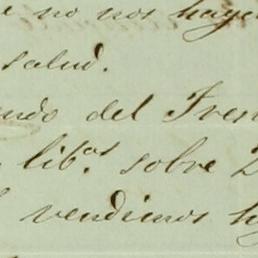 no nos haya
salud.
ndo del Fren
lib.os sobre
vendimos hy